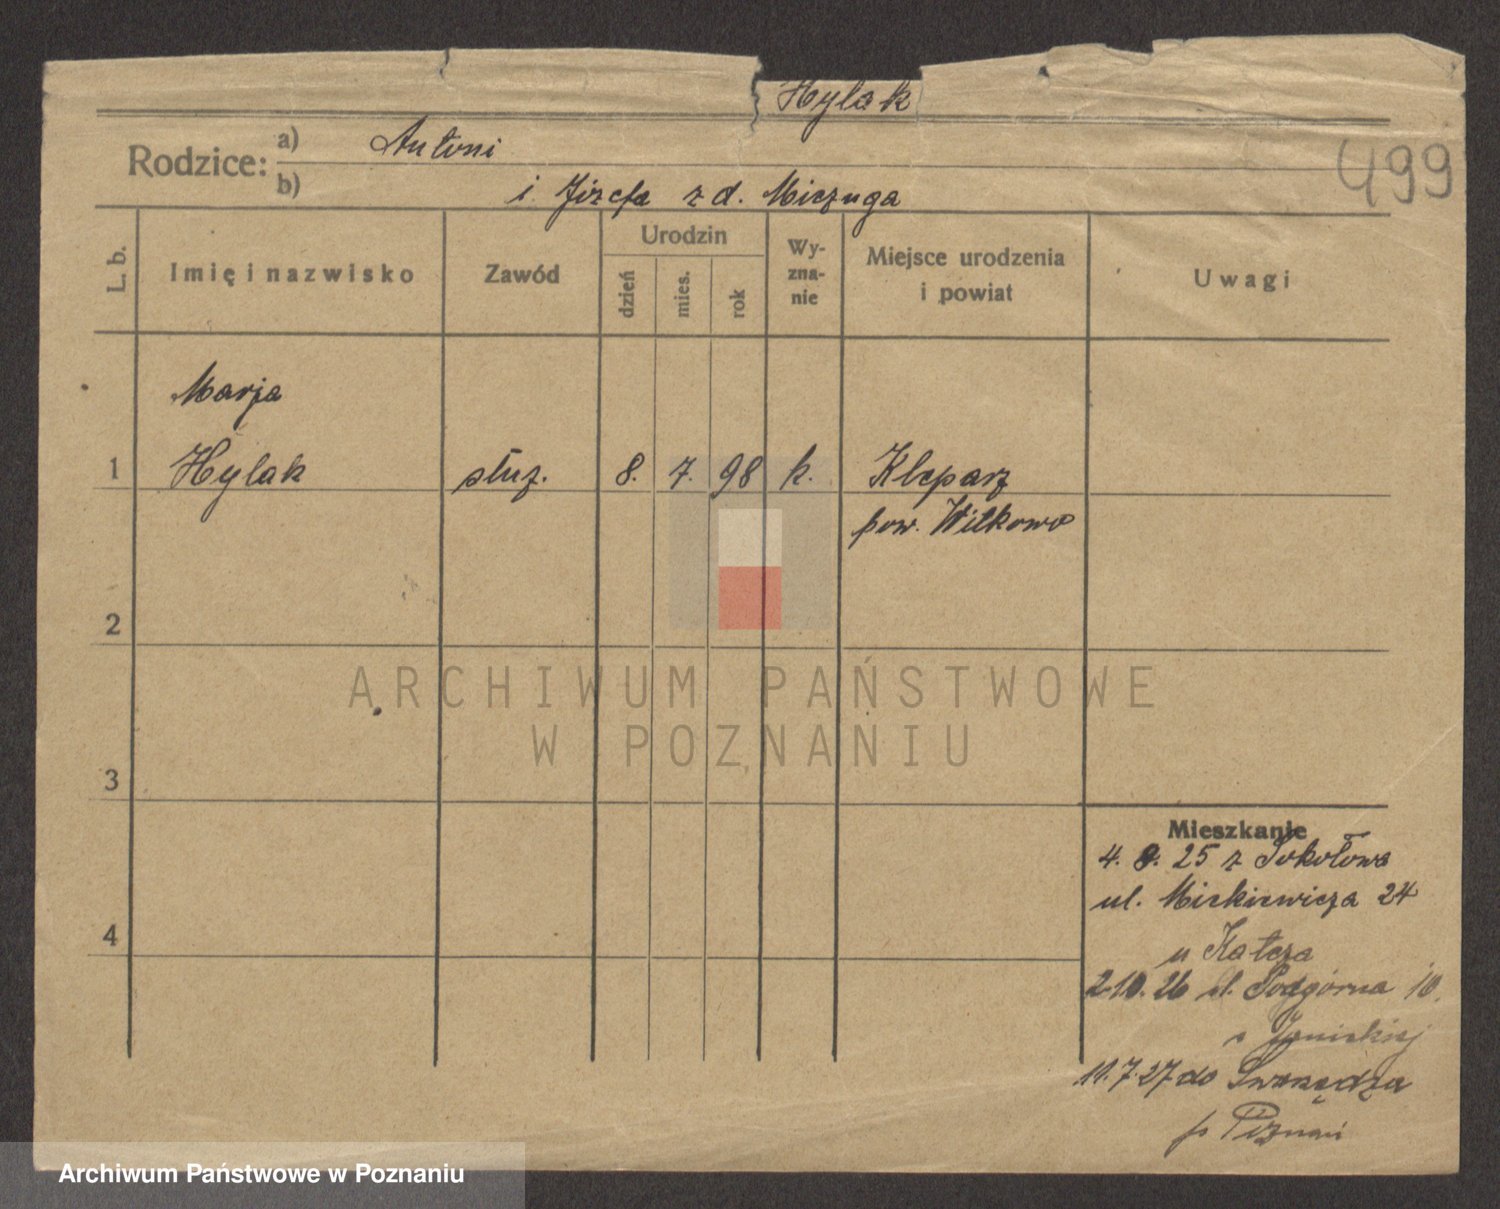 Hylak
499
Rodzice:
a) Antoni
b) i Józefa z d. Miczuga
L. b.
Imię i nazwisko
Zawód
Urodzin
dzień
mies.
rok
Wy-
zna-
nie
Miejsce urodzenia
i powiat
Uwagi
Marja
1 Hylak służ. 8. 7. 98 k. Kleparz
pow. Witkowo
2
ARCHIWUM PAŃSTWOWE
W POZNANIU
3
Mieszkanie
4. 9. 25 z Sokołowa
ul. Mickiewicza 24
4
u Katcza
2.10.26 ul. Podgórna 10.
11.7.27 do Swarzędza
p. Poznań
Archiwum Państwowe w Poznaniu